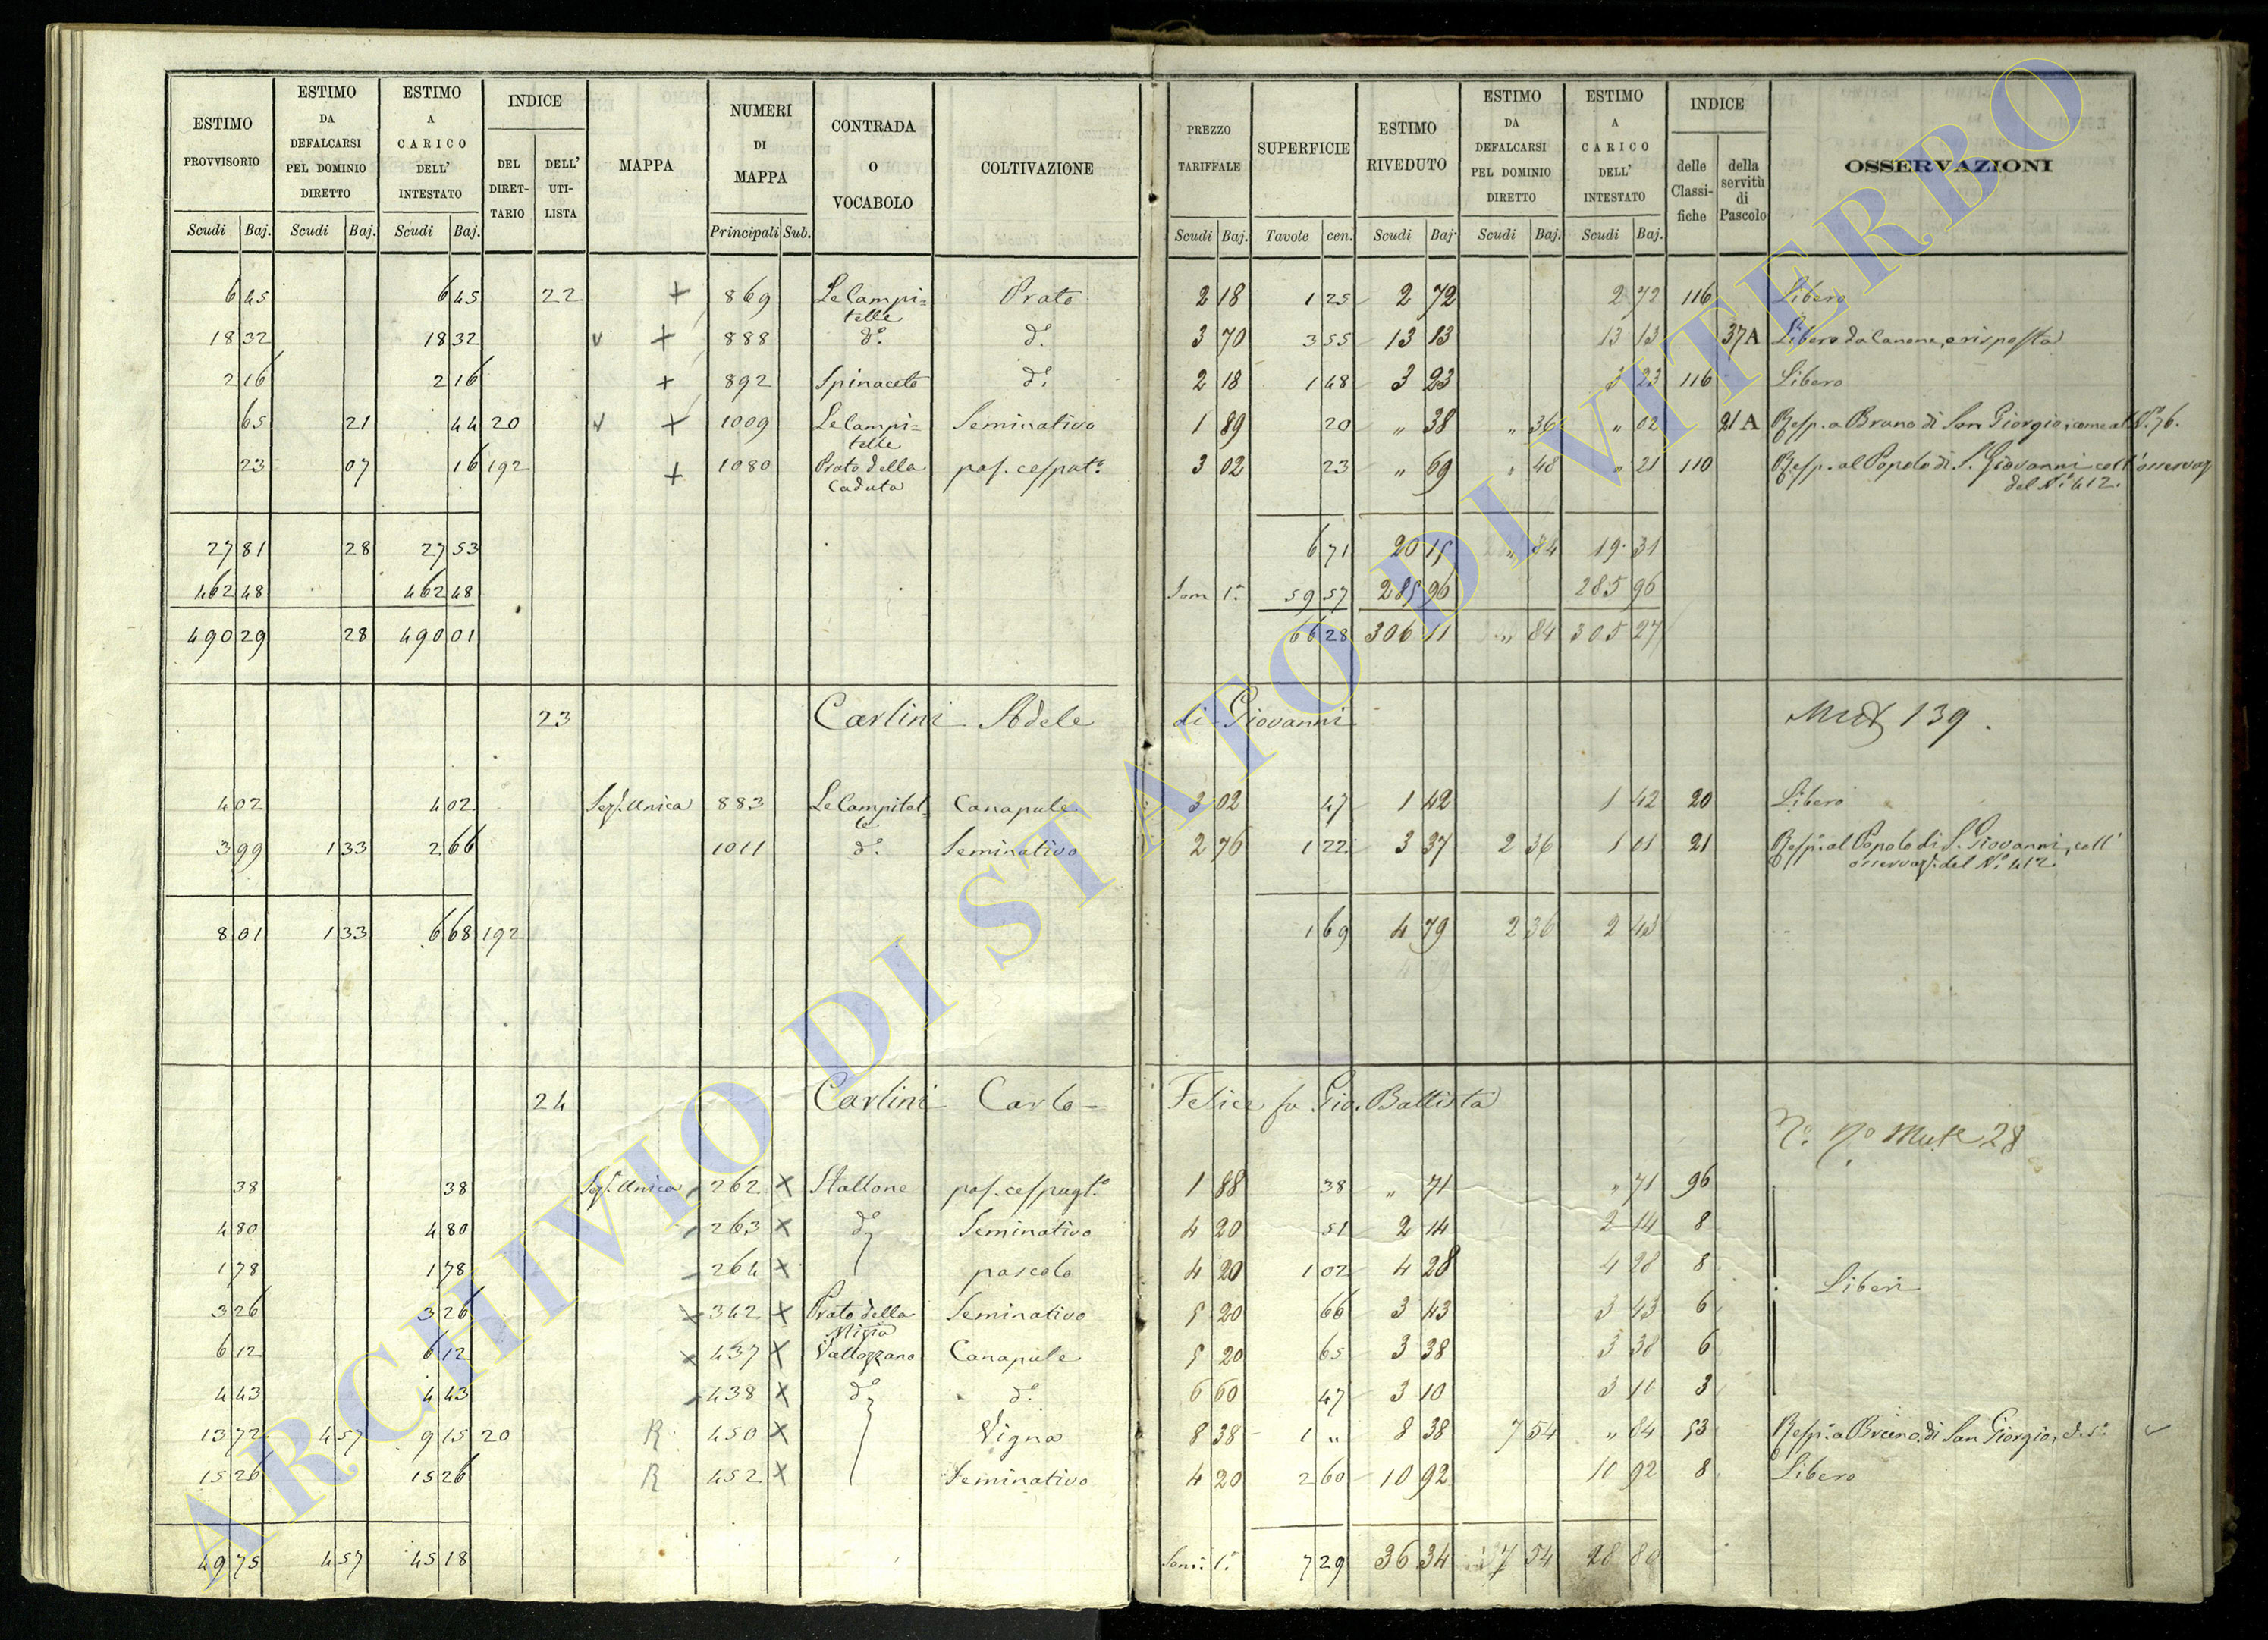 ESTIMO PROVVISORIO | ESTIMO DA DEFALCARSI PEL DOMINIO DIRETTO | ESTIMO A CARICO DELL' INTESTATO | INDICE DEL DIRETTARIO | DELL' UTILISTA | MAPPA | NUMERI DI MAPPA | CONTRADA O VOCABOLO | COLTIVAZIONE | PREZZO TARIFFALE | SUPERFICIE | ESTIMO RIVEDUTO | ESTIMO DA DEFALCARSI PEL DOMINIO DIRETTO | ESTIMO A CARICO DELL' INTESTATO | INDICE delle Classifiche | della servitù di Pascolo | OSSERVAZIONI
Scudi Baj. | Scudi Baj. | Scudi Baj. | Principali Sub. | Scudi Baj. | Tavole cen. | Scudi Baj. | Scudi Baj. | Scudi Baj.
6 45 | 6 45 | 22 | + | 869 | Le Campitelle | Prato | 2 18 | 1 25 | 2 72 | 2 72 | 116 | Libero
18 32 | 18 32 | v + | 888 | d.º | d.º | 3 70 | 3 55 | 13 13 | 13 13 | 37 A | Libero da Canone, e risposta
2 16 | 2 16 | + | 892 | Spinaceto | d.º | 2 18 | 1 48 | 3 23 | 3 23 | 116 | Libero
65 | 21 | 44 | 20 | v + | 1009 | Le Campitelle | Seminativo | 1 89 | 20 | " 38 | " 36 | " 02 | 21 A | Resp. a Bruno di San Giorgio, come al N.º 76.
23 | 07 | 16 | 192 | + | 1080 | Prato della Caduta | pas. cespat.º | 3 02 | 23 | " 69 | " 48 | " 21 | 110 | Resp. al Popolo di S. Giovanni coll'osservaz del N.º 412.
27 81 | 28 | 27 53 | 6 71 | 20 15 | " 84 | 19 31
462 48 | 462 48 | Som 1.ª | 59 57 | 285 96 | 285 96
490 29 | 28 | 490 01 | 66 28 | 306 11 | " 84 | 305 27
23 | Carlini Adele di Giovanni | 139
4 02 | 4 02 | Sez. Unica | 883 | Le Campitelle | Canapule | 3 02 | 47 | 1 42 | 1 42 | 20 | Libero
3 99 | 1 33 | 2 66 | 1011 | d.º | Seminativo | 2 76 | 1 22 | 3 37 | 2 36 | 1 01 | 21 | Resp. al Popolo di S. Giovanni, coll' osservaz. del N.º 412.
8 01 | 1 33 | 6 68 | 192 | 1 69 | 4 79 | 2 36 | 2 43
24 | Carlini Carlo Felice fu Gio. Battista
28
38 | 38 | Sez. Unica | 262 X | Stallone | pas. cespugt.º | 1 88 | 38 | " 71 | " 71 | 96
4 80 | 4 80 | 263 X | d.º | Seminativo | 4 20 | 51 | 2 14 | 2 14 | 8
1 78 | 1 78 | 264 X | pascolo | 4 20 | 1 02 | 4 28 | 4 28 | 8 | Liberi
3 26 | 3 26 | 342 X | Prato della | Seminativo | 5 20 | 66 | 3 43 | 3 43 | 6
6 12 | 6 12 | 437 X | Vallozzano | Canapule | 5 20 | 65 | 3 38 | 3 38 | 6
4 43 | 4 43 | 438 X | d.º | d.º | 6 60 | 47 | 3 10 | 3 10 | 3
13 72 | 4 57 | 9 15 | 20 | R | 450 X | Vigna | 8 38 | 1 " | 8 38 | 7 54 | " 84 | 53 | Resp. a Bruno di San Giorgio, d.s.ª
15 26 | 15 26 | R | 452 X | Seminativo | 4 20 | 2 60 | 10 92 | 10 92 | 8 | Libero
49 75 | 4 57 | 45 18 | Som. 1.ª | 7 29 | 36 34 | 7 54 | 28 80
ARCHIVIO DI STATO DI VITERBO